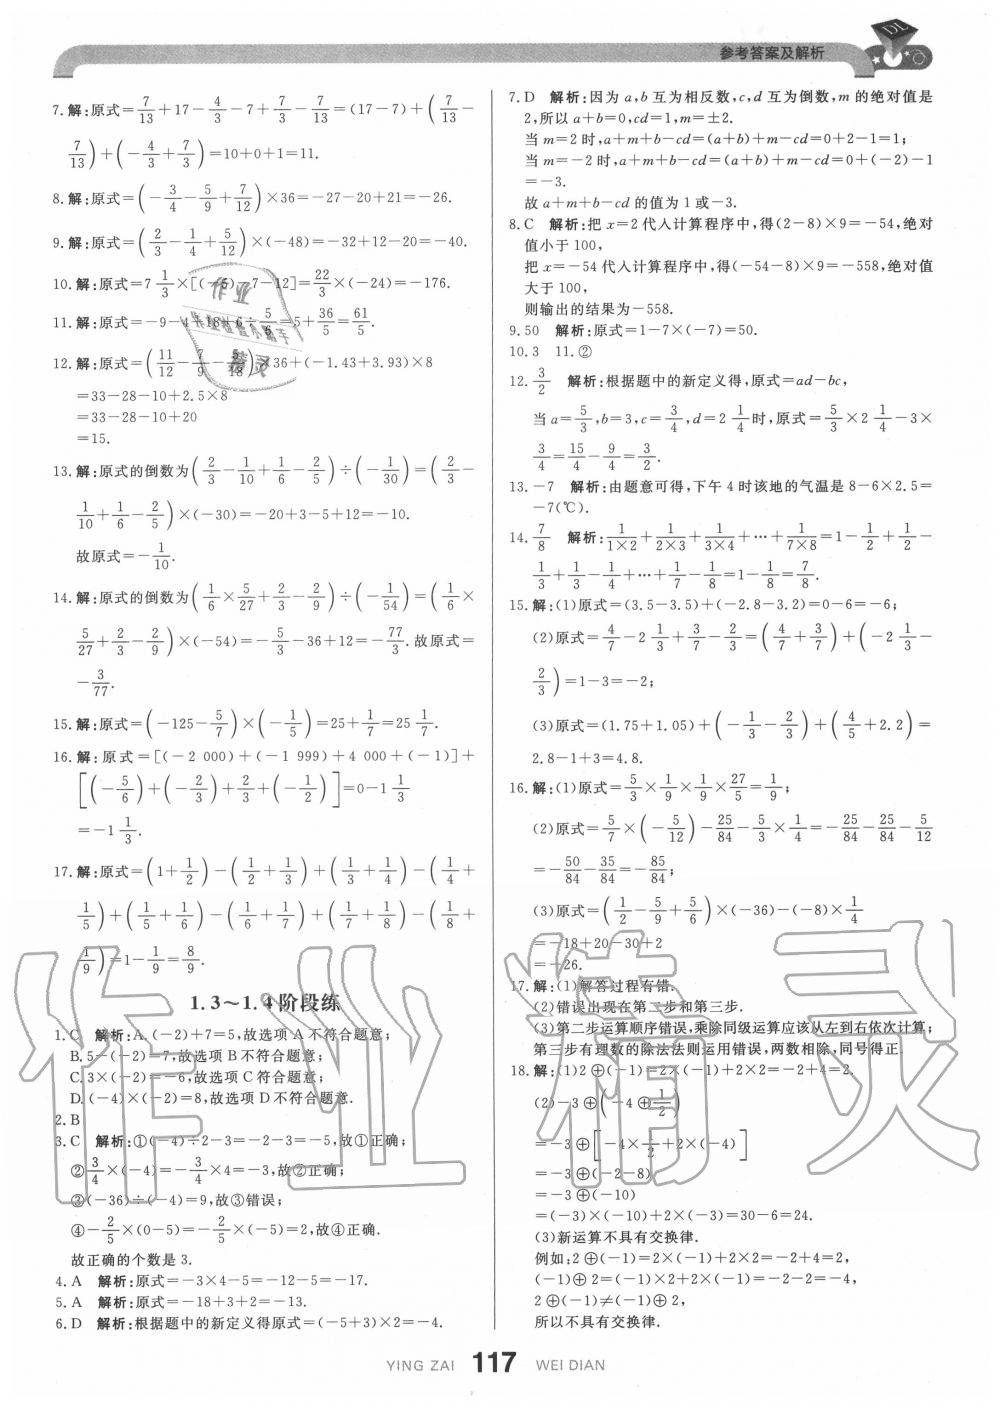 参考答案及解析
7.解:原式=7/13+17-4/3-7+7/3-7/13=(17-7)+(7/13-
7/13)+(-4/3+7/3)=10+0+1=11.
8.解:原式=(-3/4-5/9+7/12)×36=-27-20+21=-26.
9.解:原式=(2/3-1/4+5/12)×(-48)=-32+12-20=-40.
10.解:原式=7 1/3×[(-5)-7-12]=22/3×(-24)=-176.
11.解:原式=-9-4+18+6÷5/6=5+36/5=61/5.
12.解:原式=(11/12-7/9-5/18)×36+(-1.43+3.93)×8
=33-28-10+2.5×8
=33-28-10+20
=15.
13.解:原式的倒数为(2/3-1/10+1/6-2/5)÷(-1/30)=(2/3-
1/10+1/6-2/5)×(-30)=-20+3-5+12=-10.
故原式=-1/10.
14.解:原式的倒数为(1/6×5/27+2/3-2/9)÷(-1/54)=(1/6×
5/27+2/3-2/9)×(-54)=-5/3-36+12=-77/3.故原式=
-3/77.
15.解:原式=(-125-5/7)×(-1/5)=25+1/7=25 1/7.
16.解:原式=[(-2 000)+(-1 999)+4 000+(-1)]+
[(-5/6)+(-2/3)+2/3+(-1/2)]=0-1 1/3
=-1 1/3.
17.解:原式=(1+1/2)-(1/2+1/3)+(1/3+1/4)-(1/4+
1/5)+(1/5+1/6)-(1/6+1/7)+(1/7+1/8)-(1/8+
1/9)=1-1/9=8/9.
1.3~1.4阶段练
1.C 解析:A.(-2)+7=5,故选项A不符合题意;
B.5-(-2)=7,故选项B不符合题意;
C.3×(-2)=-6,故选项C符合题意;
D.(-4)×(-2)=8,故选项D不符合题意.
2.B
3.C 解析:①(-4)÷2-3=-2-3=-5,故①正确;
②3/4×(-4)=-3/4×4=-3,故②正确;
③(-36)÷(-4)=9,故③错误;
④-2/5×(0-5)=-2/5×(-5)=2,故④正确.
故正确的个数是3.
4.A 解析:原式=-3×4-5=-12-5=-17.
5.A 解析:原式=-18+3+2=-13.
6.D 解析:根据题中的新定义得原式=(-5+3)×2=-4.
7.D 解析:因为a,b互为相反数,c,d互为倒数,m的绝对值是
2,所以a+b=0,cd=1,m=±2.
当m=2时,a+m+b-cd=(a+b)+m-cd=0+2-1=1;
当m=-2时,a+m+b-cd=(a+b)+m-cd=0+(-2)-1
=-3.
故a+m+b-cd的值为1或-3.
8.C 解析:把x=2代入计算程序中,得(2-8)×9=-54,绝对
值小于100,
把x=-54代入计算程序中,得(-54-8)×9=-558,绝对值
大于100,
则输出的结果为-558.
9.50 解析:原式=1-7×(-7)=50.
10.3 11.②
12.3/2 解析:根据题中的新定义得,原式=ad-bc,
当a=5/3,b=3,c=3/4,d=2 1/4时,原式=5/3×2 1/4-3×
3/4=15/4-9/4=3/2.
13.-7 解析:由题意可得,下午4时该地的气温是8-6×2.5=
-7(℃).
14.7/8 解析:1/1×2+1/2×3+1/3×4+…+1/7×8=1-1/2+1/2-
1/3+1/3-1/4+…+1/7-1/8=1-1/8=7/8.
15.解:(1)原式=(3.5-3.5)+(-2.8-3.2)=0-6=-6;
(2)原式=4/7-2 1/3+3/7-2/3=(4/7+3/7)+(-2 1/3-
2/3)=1-3=-2;
(3)原式=(1.75+1.05)+(-1/3-2/3)+(4/5+2.2)=
2.8-1+3=4.8.
16.解:(1)原式=5/3×1/9×1/9×27/5=1/9;
(2)原式=5/7×(-5/12)-25/84-5/3×1/4=-25/84-25/84-5/12
=-50/84-35/84=-85/84;
(3)原式=(1/2-5/9+5/6)×(-36)-(-8)×1/4
=-18+20-30+2
=-26.
17.解:(1)解答过程有错.
(2)错误出现在第二步和第三步.
(3)第二步运算顺序错误,乘除同级运算应该从左到右依次计算;
第三步有理数的除法法则运用错误,两数相除,同号得正.
18.解:(1)2⊕(-1)=2×(-1)+2×2=-2+4=2.
(2)-3⊕(-4⊕1/2)
=-3⊕[-4×1/2+2×(-4)]
=-3⊕(-2-8)
=-3⊕(-10)
=(-3)×(-10)+2×(-3)=30-6=24.
(3)新运算不具有交换律.
例如:2⊕(-1)=2×(-1)+2×2=-2+4=2,
(-1)⊕2=(-1)×2+2×(-1)=-2-2=-4,
2⊕(-1)≠(-1)⊕2,
所以不具有交换律.
YING ZAI 117 WEI DIAN
作业精灵